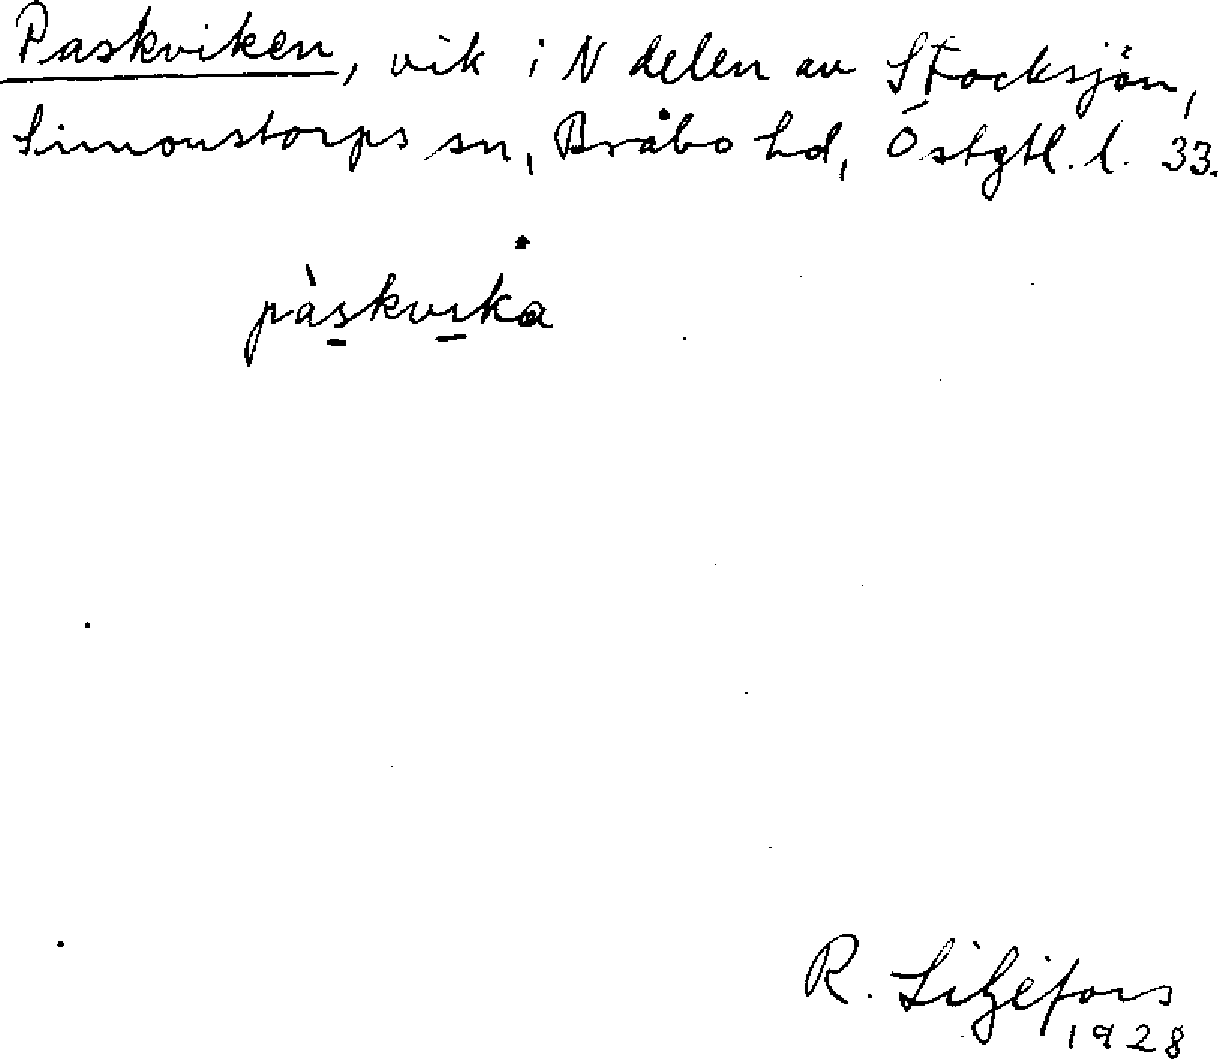 Paskviken, vik i N delen av Stocksjön,
Simonstorps sn, Bråbo hd, Östgtl. l. 33.
pàskvika
R. Liljefors
1928